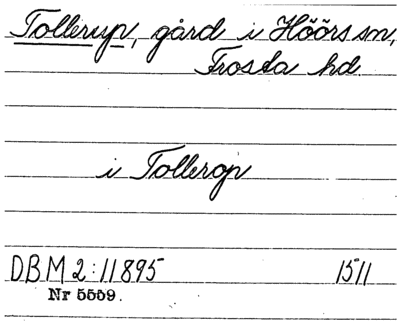 Tollerup, gård i Höörs sn,
Frosta hd.
i Tollerop
DBM 2:11895 1511
Nr 5559.